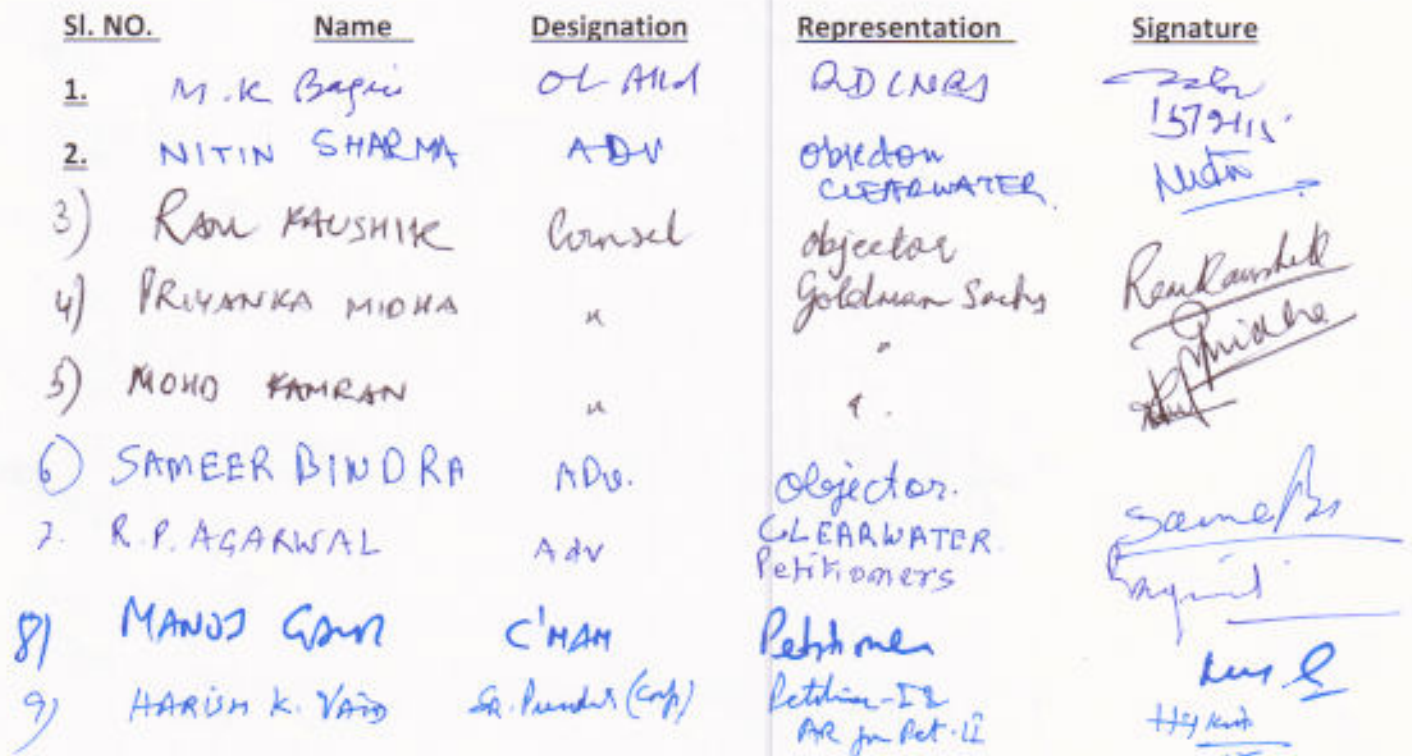 Sl. NO. Name Designation Representation Signature
1. M.K OL Alld RD (NR)
15/9/15
2. NITIN SHARMA ADV Objector
CLEARWATER Nitin
3) KAUSHIK Counsel Objector
4) PRIYANKA MIDHA " Goldman Sachs
"
5) MOHD KAMRAN " "
6) SAMEER BINDRA ADv. Objector.
7. R.P. AGARWAL Adv CLEARWATER.
Petitioners
8) MANOJ GAUR C'MAN Petitioner
9) HARISH K. VAID Sr. President (Corp) Petitioner-II
AR for Pet-II